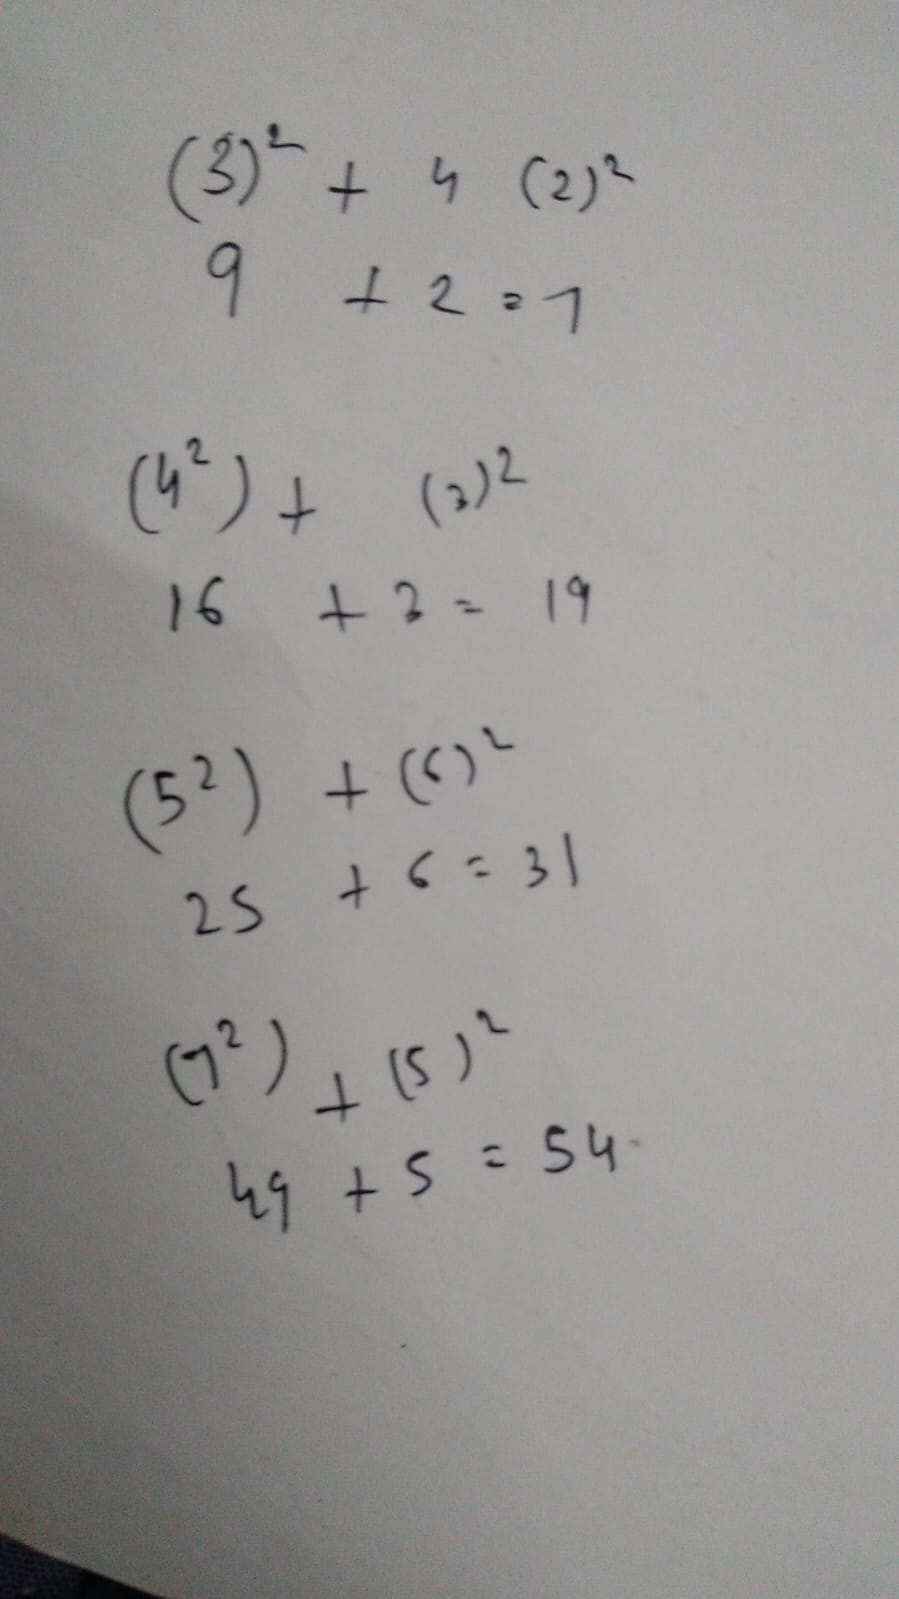 (3)² + 4 (2)²
9 + 2 = 7
(4²) + (3)²
16 + 3 = 19
(5²) + (6)²
25 + 6 = 31
(7²) + (5)²
49 + 5 = 54